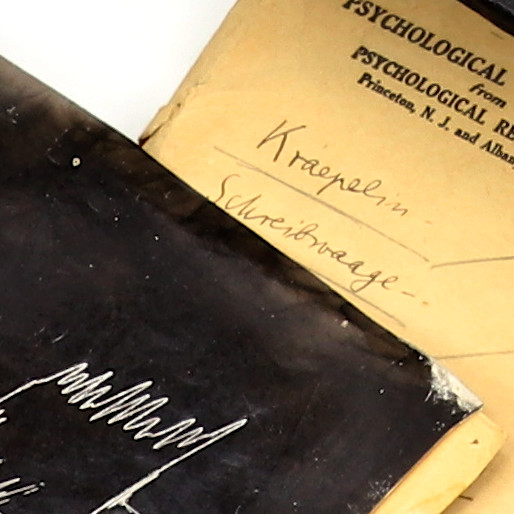 PSYCHOLOGICAL
from
PSYCHOLOGICAL RE
Princeton, N. J. and Alban
Kraepelin-
Schreibwaage--